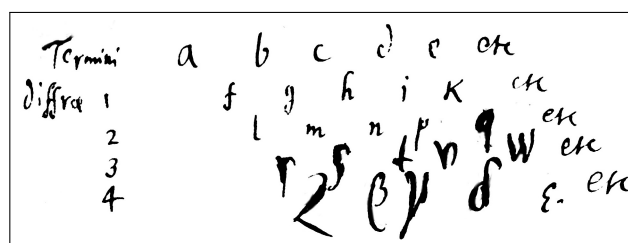 Termini a b c d e etc
diffræ 1 f g h i K etc
2 l m n p q etc
3 r s t v w etc
4 z β γ δ ε. etc